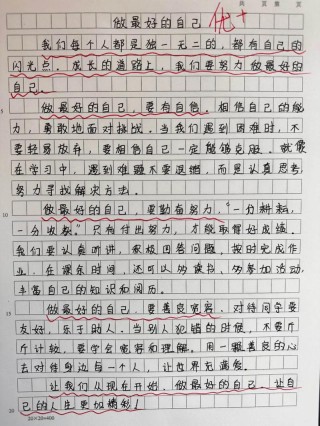 共 页 第 页
做最好的自己 优+
我们每个人都是独一无二的，都有自己的
闪光点。成长的道路上，我们要努力做最好的
自己。
5 做最好的自己，要有自信。相信自己的能
力，勇敢地面对挑战。当我们遇到困难时，不
要轻易放弃，要相信自己一定能够克服。就像
在学习中，遇到难题不要退缩，而是认真思考，
努力寻找解决方法。
10 做最好的自己，要勤奋努力。“一分耕耘，
一分收获。”只有付出努力，才能取得好成绩。
我们要认真听讲，积极回答问题，按时完成作
业。在课余时间，还可以多读书、多参加活动，
丰富自己的知识和阅历。
15 做最好的自己，要善良宽容。对待同学要
友好，乐于助人。当别人犯错的时候，不要斤
斤计较，要学会宽容和理解。用一颗善良的心
去对待身边每一个人，让世界充满爱。
让我们从现在开始，做最好的自己，让自
20 己的人生更加精彩！
20×20=400